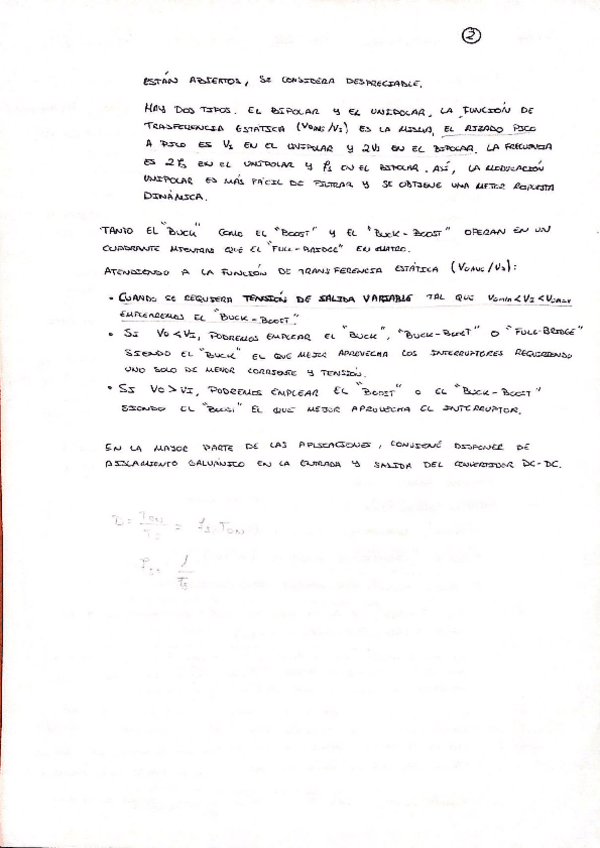 2
ESTÁN ABIERTOS, SE CONSIDERA DESPRECIABLE.
HAY DOS TIPOS. EL BIPOLAR Y EL UNIPOLAR. LA FUNCIÓN DE
TRASFERENCIA ESTATICA (VOAVG/VI) ES LA MISMA, EL RIZADO PICO
A PICO ES VI EN EL UNIPOLAR Y 2VI EN EL BIPOLAR. LA FRECUENCIA
ES 2fs EN EL UNIPOLAR Y fs EN EL BIPOLAR. ASÍ, LA MODULACIÓN
UNIPOLAR ES MÁS FÁCIL DE FILTRAR Y SE OBTIENE UNA MEJOR RESPUESTA
DINÁMICA.
TANTO EL "BUCK" COMO EL "BOOST" Y EL "BUCK-BOOST" OPERAN EN UN
CUADRANTE MIENTRAS QUE EL "FULL-BRIDGE" EN CUATRO.
ATENDIENDO A LA FUNCIÓN DE TRANSFERENCIA ESTÁTICA (VOAVG/VI):
• CUANDO SE REQUIERA TENSIÓN DE SALIDA VARIABLE TAL QUE VOMIN<VI<VOMAX
EMPLEAREMOS EL "BUCK-BOOST".
• SI VO<VI, PODREMOS EMPLEAR EL "BUCK", "BUCK-BOOST" O "FULL-BRIDGE"
SIENDO EL "BUCK" EL QUE MEJOR APROVECHA LOS INTERRUPTORES REQUIRIENDO
UNO SOLO DE MENOR CORRIENTE Y TENSIÓN.
• SI VO>VI, PODREMOS EMPLEAR EL "BOOST" O EL "BUCK-BOOST"
SIENDO EL "BOOST" EL QUE MEJOR APROVECHA EL INTERRUPTOR.
EN LA MAYOR PARTE DE LAS APLICACIONES, CONVIENE DISPONER DE
AISLAMIENTO GALVÁNICO EN LA ENTRADA Y SALIDA DEL CONVERTIDOR DC-DC.
D = TON/TS = fs · TON
fs = 1/TS